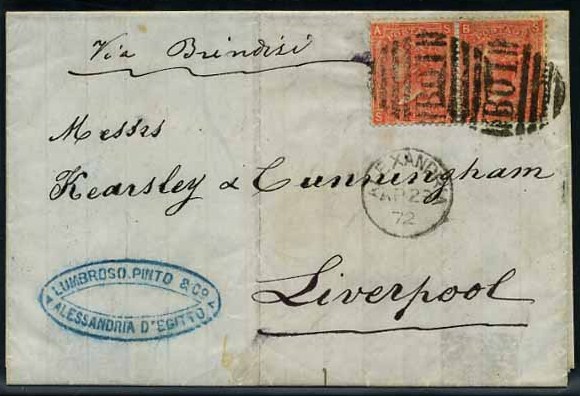 Via Brindisi
A S B S
POSTAGE
B01 B01
S
Messrs
Kearsley & Cunningham
ALEXANDRIA
AP 23
72
Liverpool
LUMBROSO, PINTO & CO.
ALESSANDRIA D'EGITTO